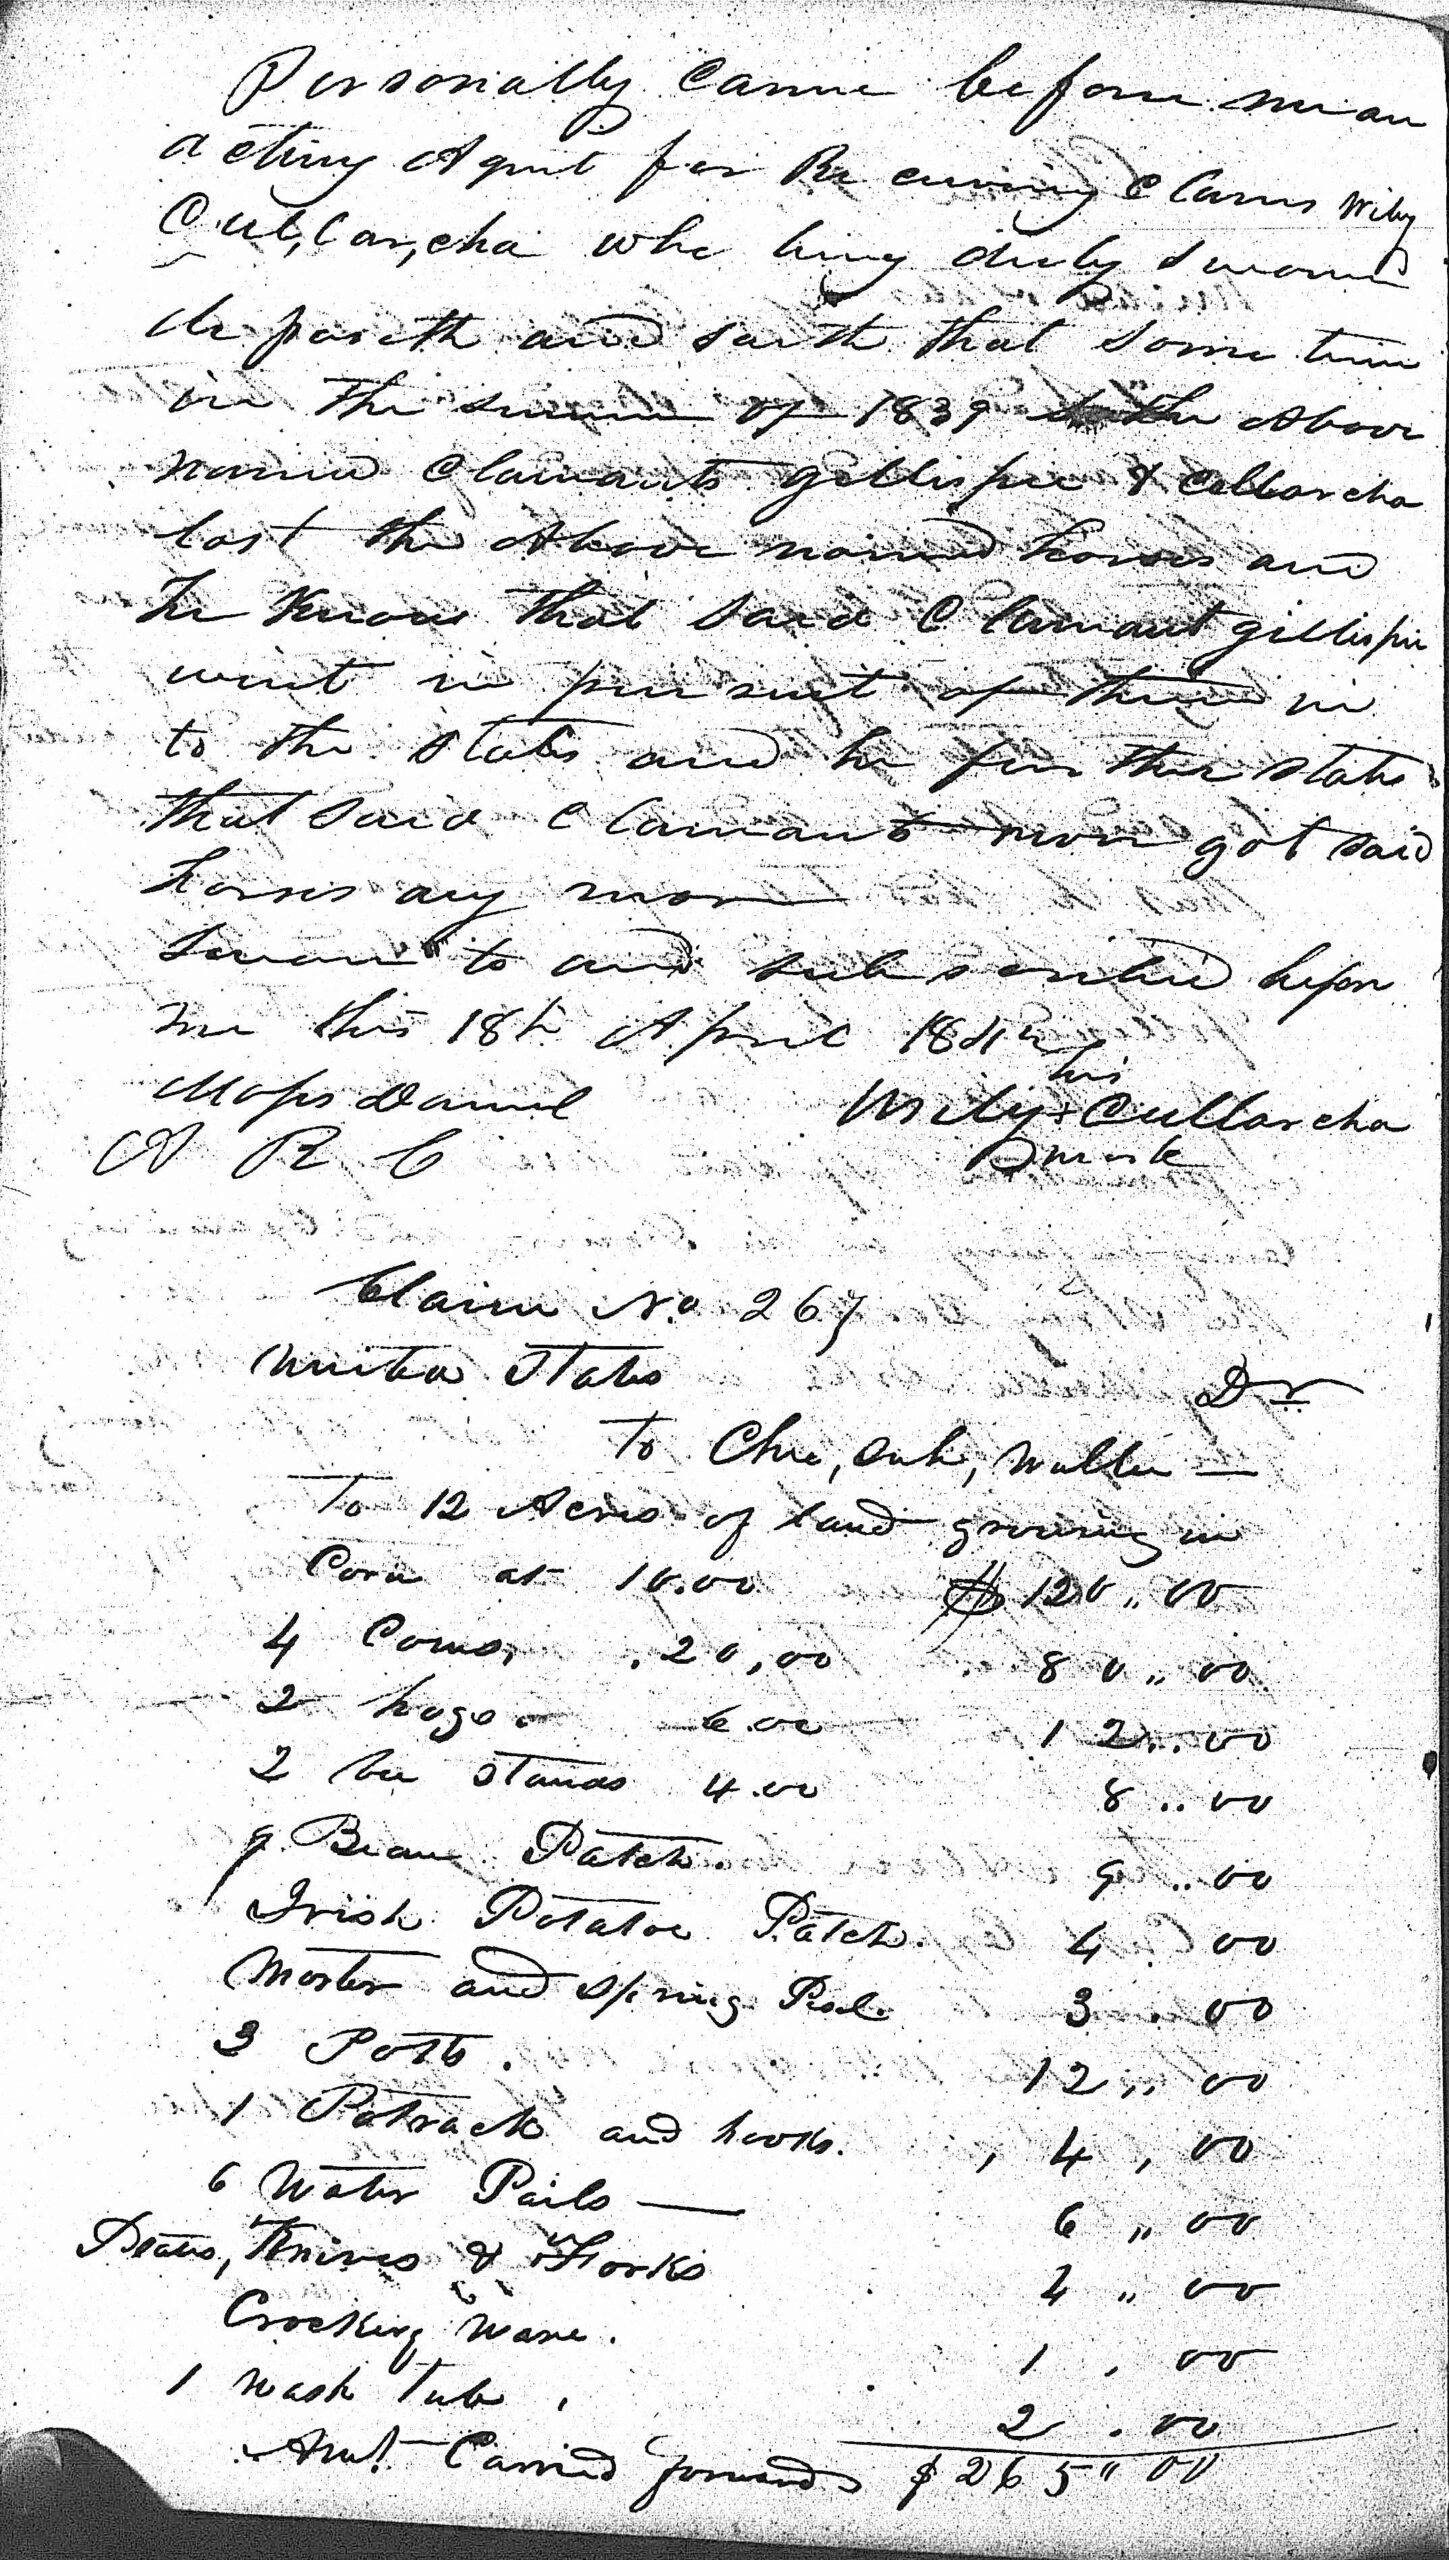 Personally came before me an
acting Agent for Receiving Claims Wiley
Cul,lar,cha who being duly sworn
deposith and saith that some time
in the summer of 1839 the Above
named Claimants gillispie & Cullarcha
lost the Above named horses and
he knows that said Claimant gillispie
went in pursuit of them in
to the states and he further states
that said Claimants never got said
horses any more
Sworn to and subscribed before
me this 18th April 1842
his
Moses Daniel Wiley + Cullarcha
A R C mark
Claim No. 267
United States Dr
To Chu, Wallee —
To 12 Acres of land growing in
Corn at 10.00 $ 120 ,, 00
4 Cows, . 20,00 80 ,, 00
2 hogs . 6.00 12 .. 00
2 bee stands 4.00 8 .. 00
9. Bean Patch. 9 .. 00
Irish Potatoe Patch. 4 . 00
Morter and Spring Pesl. 3 . 00
3 Potts. 12 ,, 00
1 Potrack and hooks. , 4 , 00
6 Water Pails — 6 ,, 00
Plates, Knives & Forks 4 ,, 00
Crocking Ware. 1 , 00
1 Wash Tub , 2 . 00
Amt. Carried forwards $ 265 " 00